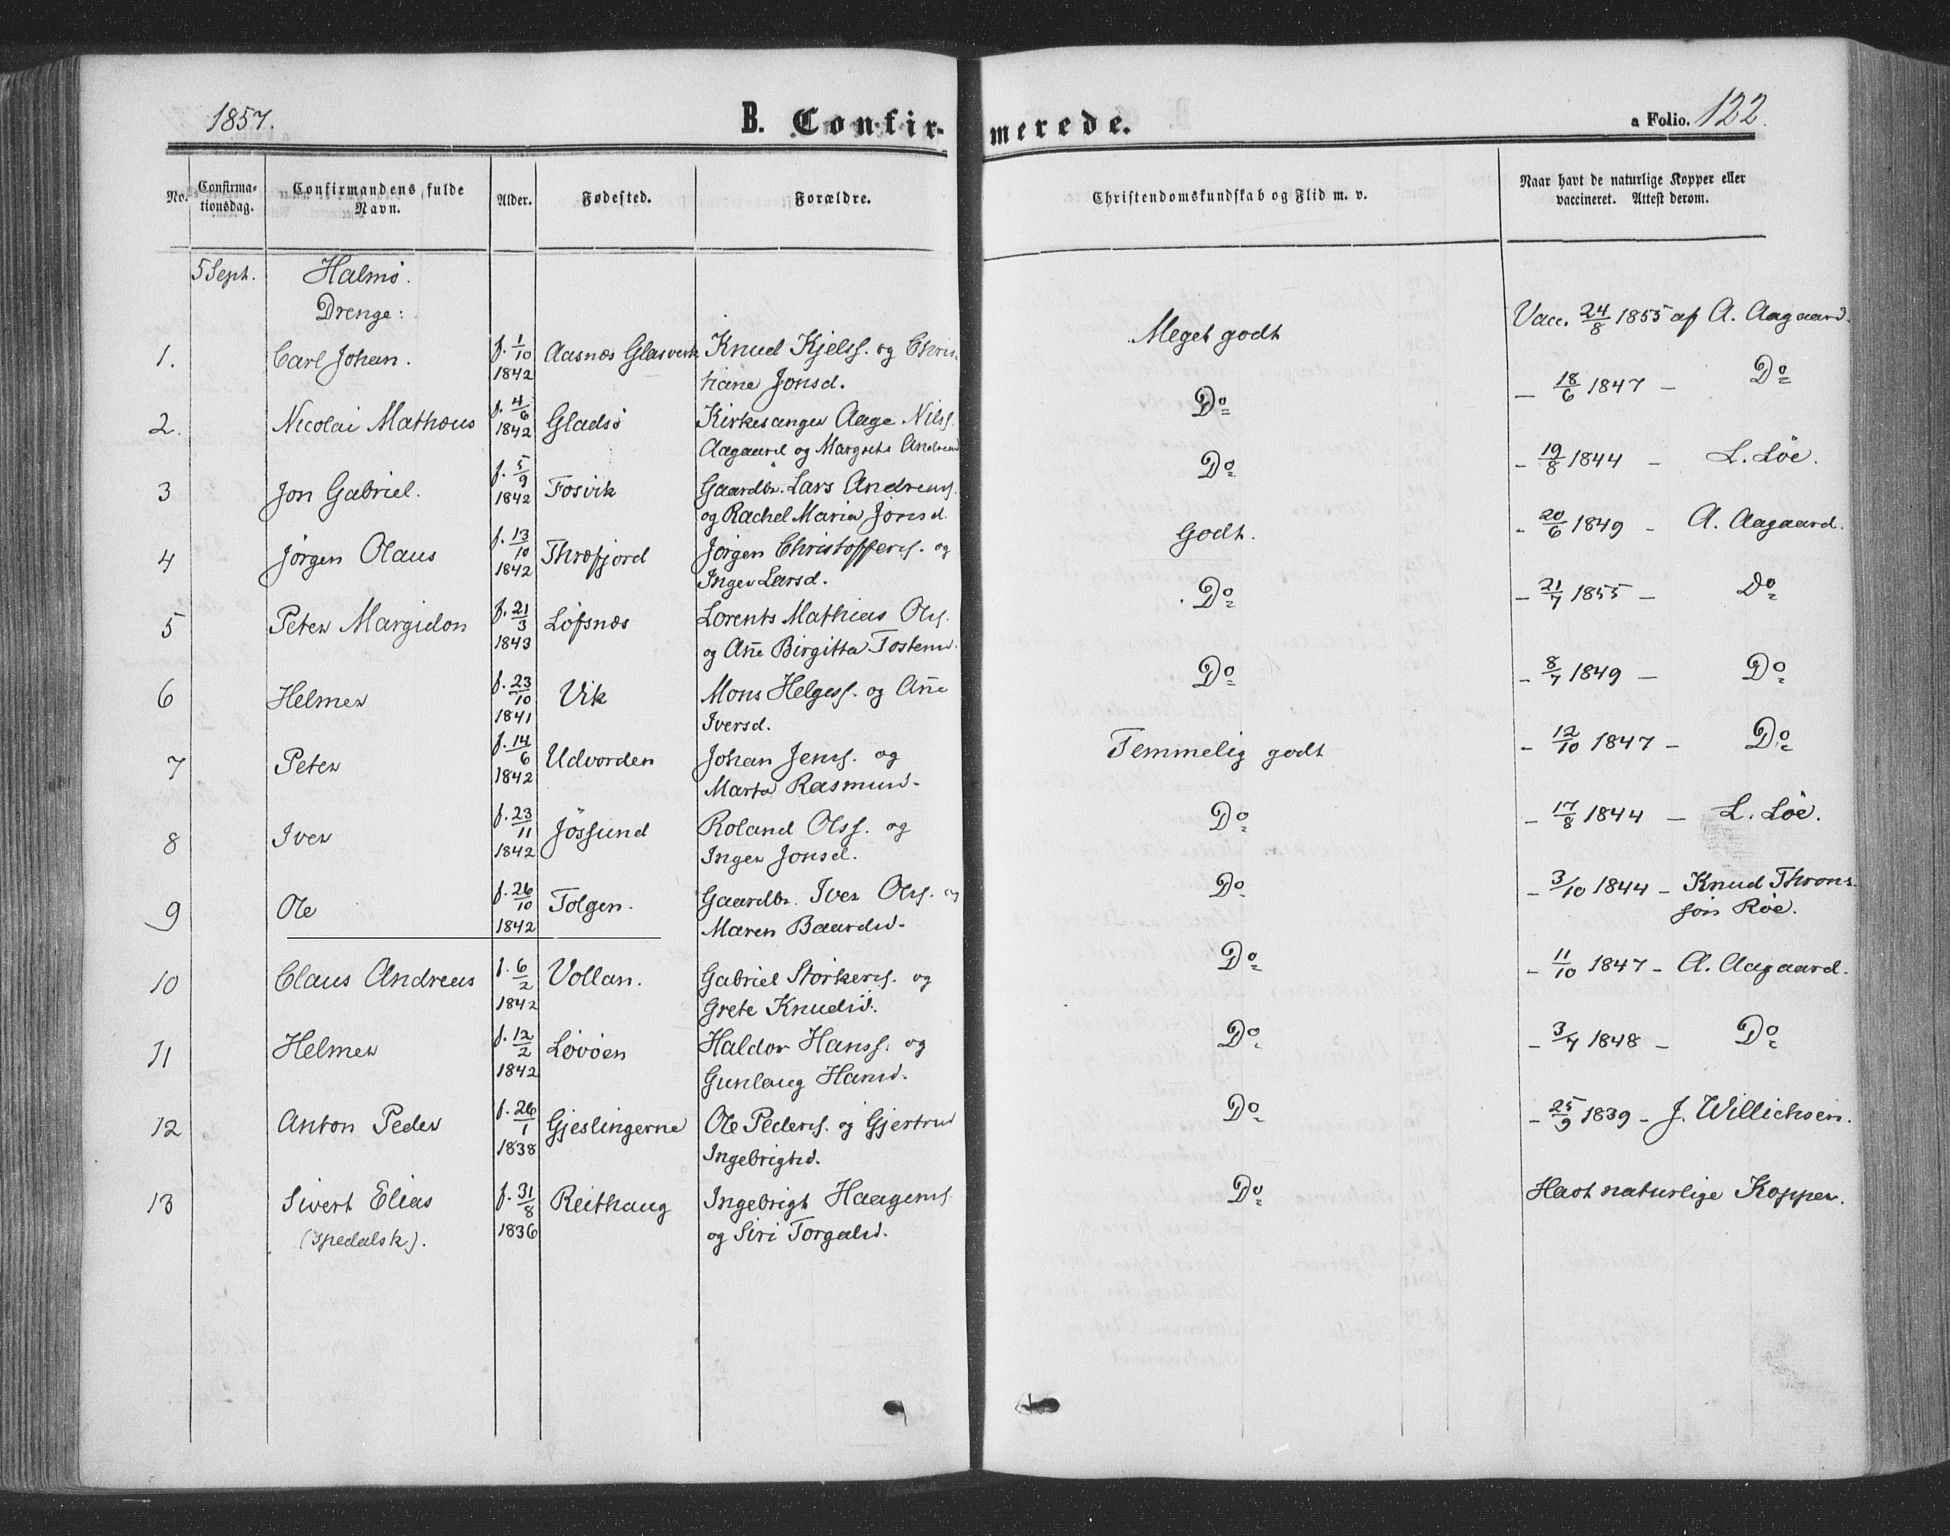 1857.
B. Confirmerede.
a Folio. 122.
No. Confirmationsdag. Confirmandens fulde Navn. Alder. Fødested. Forældre. Christendomskundskab og Flid m. v. Naar havt de naturlige Kopper eller vaccineret. Attest derom.
5 Sept. Halmö.
Drenge:
1. Carl Johan. f. 1/10 1842 Aasnæs Glasverk Knud Kjelss. og Chris- Meget godt Vacc. 24/8 1855 af A. Aagaard.
tiane Jonsd.
2. Nicolai Mathæus f. 4/6 1842 Gladsö Kirkesanger Aage Nilss. Do - 18/6 1847 - Do
Aagaard og Margrete Andreasd
3 Jon Gabriel. f. 5/9 1842 Fosvik Gaardbr. Lars Andreass. Do - 19/8 1844 - L. Löe.
og Rachel Maria Jonsd.
4 Jörgen Olaus f. 13/10 1842 Thræfjord Jörgen Christoffers. og Godt. - 20/6 1849 - A. Aagaard.
Inger Larsd.
5 Peter Margidon f. 21/3 1843 Löfsnæs Lorents Mathias Ols. Do - 21/7 1855 - Do
og Ane Birgitta Tostens.
6 Helmer f. 23/10 1841 Vik Mons Helgess. og Ane Do - 8/7 1849 - Do
Iversd.
7 Peter f. 14/6 1842 Udvorden Johan Jenss. og Temmelig godt - 12/10 1847 - Do
Marta Rasmusd.
8 Iver f. 23/11 1842 Jössund Roland Olss. og Do - 17/8 1844 - L. Löe.
Inger Jonsd.
9 Ole f. 26/10 1842 Folgen. Gaardbr. Iver Ols. og Do - 3/10 1844 - Knud Throns-
Maren Baardsd. sön Röe.
10 Claus Andreas f. 6/2 1842 Vollan. Gabriel Störkers. og Do - 11/10 1847 - A. Aagaard.
Grete Knudsd.
11 Helmer f. 12/2 1842 Lövöen Haldor Hanss. og Do - 3/7 1848 - Do
Gunlaug Hansd.
12 Anton Peder f. 26/1 1838 Gjeslingerne Ole Peders. og Gjertrud Do - 25/9 1839 - J. Willichsen.
Ingebrigtsd.
13 Sivert Elias f. 31/8 1836 Reithaug Ingebrigt Haagens. Do Havt naturlige Kopper.
(spedalsk). og Siri Torgalsd.